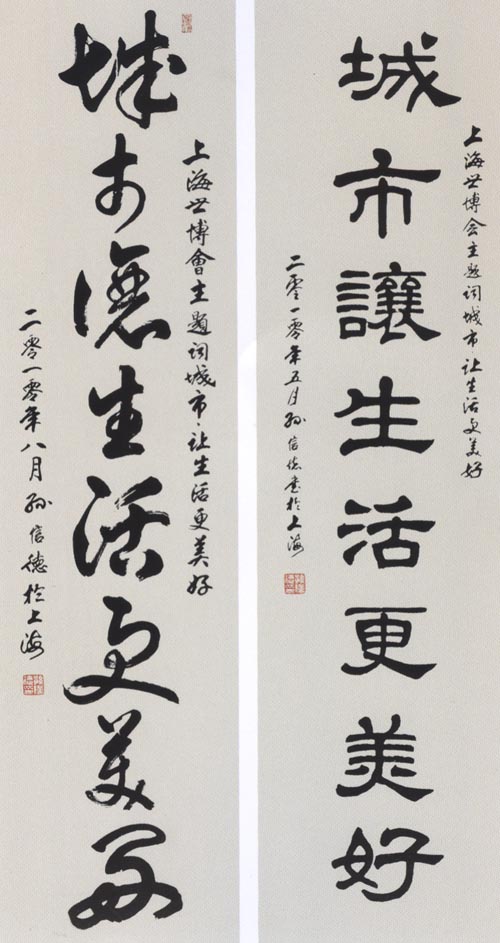 上海世博会主题词城市让生活更美好
城市讓生活更美好
二零一零年五月孙信德书於上海
上海世博會主题词城市·让生活更美好
城市讓生活更美好
二零一零年八月孙信德於上海